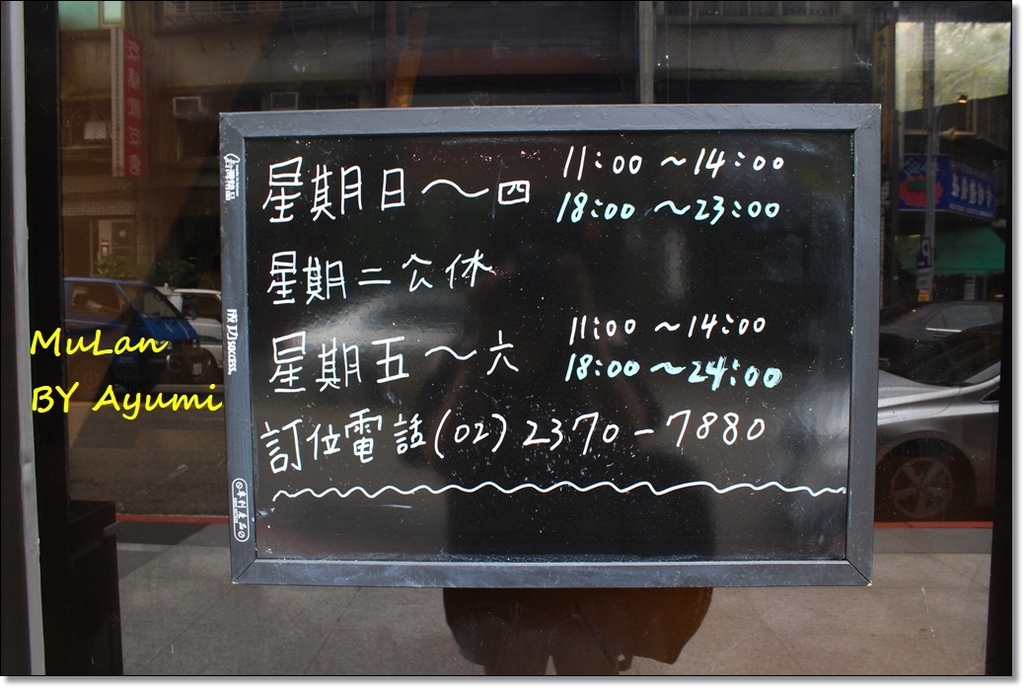 星期日～四 11:00 ~14:00
18:00 ~23:00
星期二公休
星期五～六 11:00 ~14:00
18:00 ~24:00
訂位電話(02)2370-7880
台灣精品
成功 success.
專利產品
MuLan
BY Ayumi